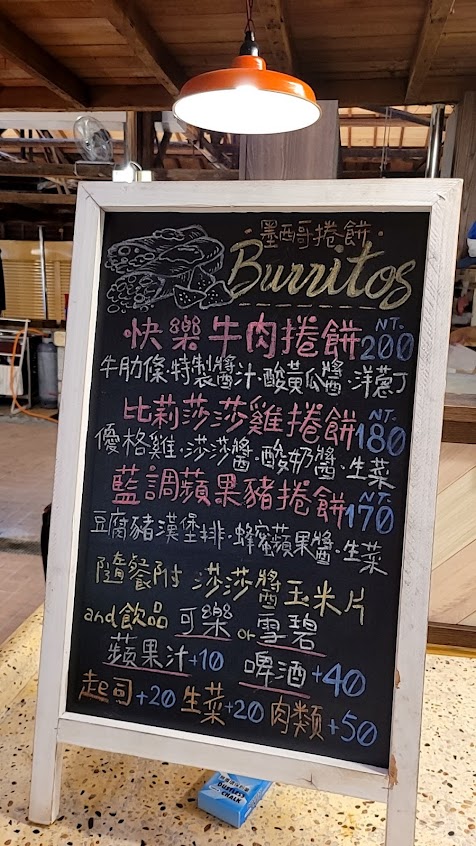 ·墨西哥捲餅·
Burritos
快樂牛肉捲餅 NT. 200
牛肋條·特製醬汁·酸黃瓜醬·洋蔥丁
比莉莎莎雞捲餅 NT. 180
優格雞·莎莎醬·酸奶醬·生菜
藍調蘋果豬捲餅 NT. 170
豆腐豬漢堡排·蜂蜜蘋果醬·生菜
隨餐附 莎莎醬玉米片
and飲品 可樂 or 雪碧
蘋果汁+10 啤酒+40
起司+20 生菜+20 肉類+50
DUSTLESS
CHALK